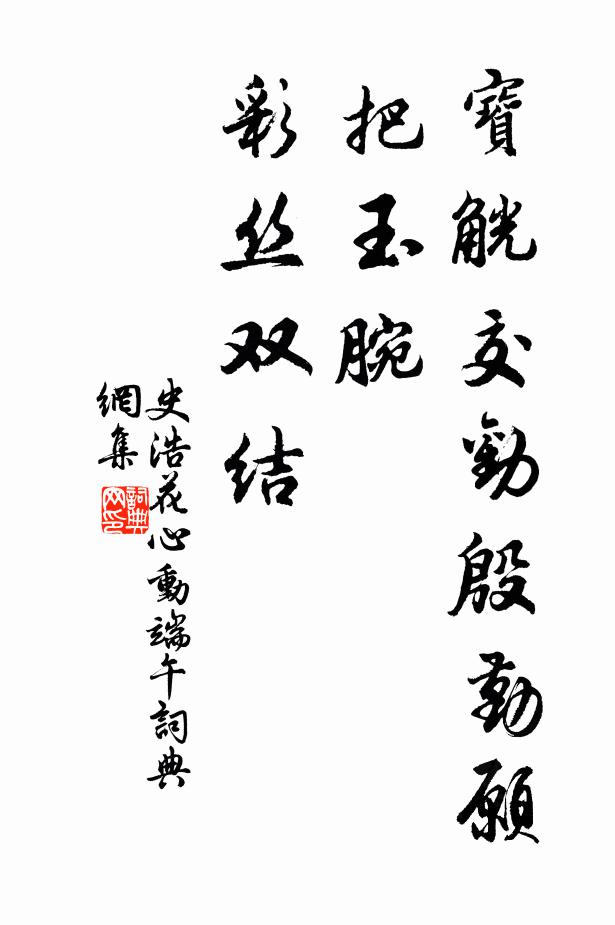 寶觥交勸殷勤願
把玉腕
彩丝双结
史浩花心動端午詞典
網集
詞典
网印